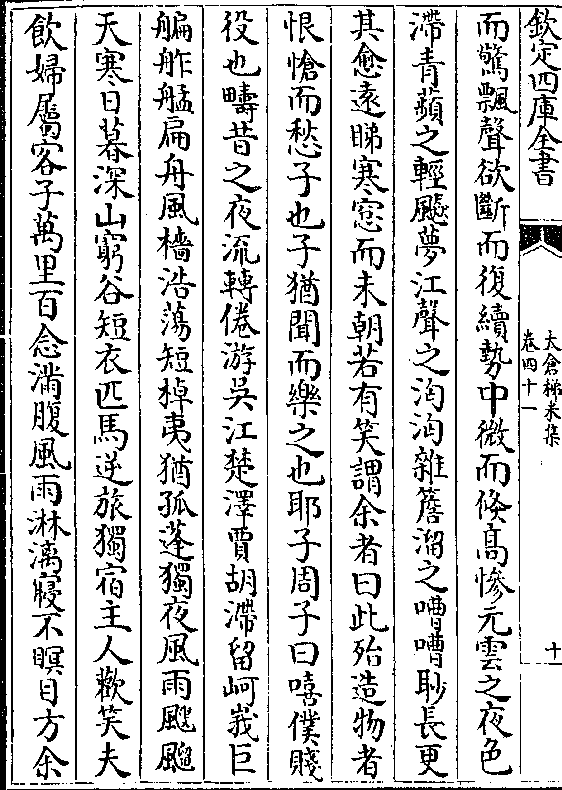 欽定四庫全書
太倉稊米集
卷四十一
十
而驚飄聲欲斷而復續勢中微而倏高慘元雲之夜色
滯青蘋之輕颸夢江聲之洶洶雜簷溜之嘈嘈耿長更
其愈遠睇寒窓而未朝若有笑謂余者曰此殆造物者
恨愴而愁子也子猶聞而樂之也耶子周子曰嘻僕賤
役也疇昔之夜流轉倦游吳江楚澤賈胡滯留峒峩巨
艑舴艋扁舟風檣浩蕩短棹夷猶孤蓬獨夜風雨颼飀
天寒日暮深山窮谷短衣匹馬逆旅獨宿主人歡笑夫
飲婦屬客子萬里百念滿腹風雨淋漓寢不瞑目方余